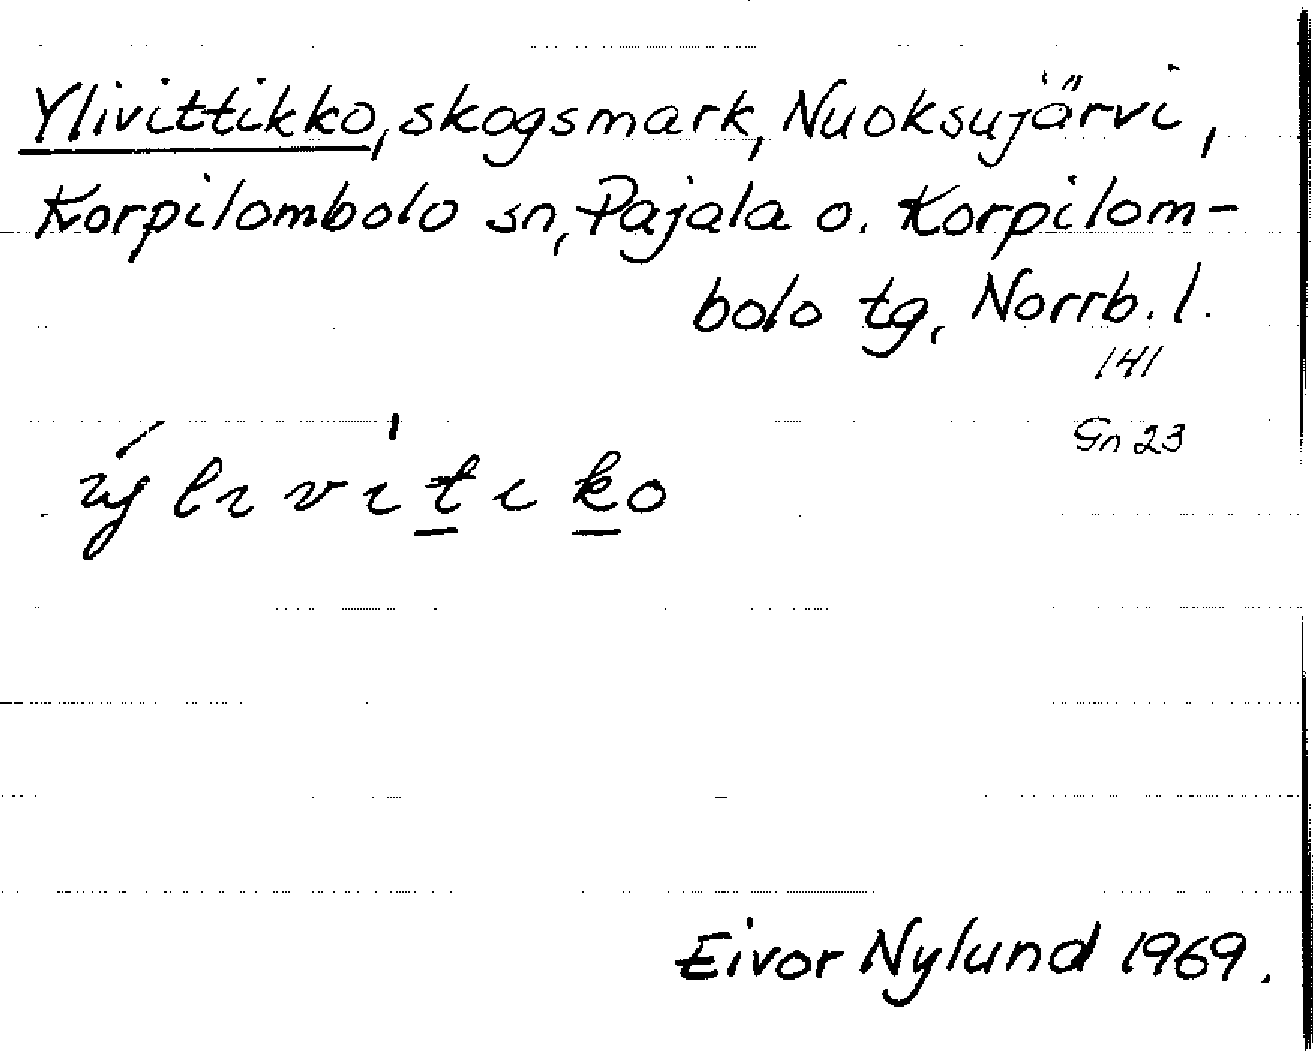 Ylivittikko, skogsmark, Nuoksujärvi,
Korpilombolo sn, Pajala o. Korpilom-
bolo tg, Norrb. l.
141
Gn 23
ý l ı v ı̍ t̲ ı k̲ o
Eivor Nylund 1969.